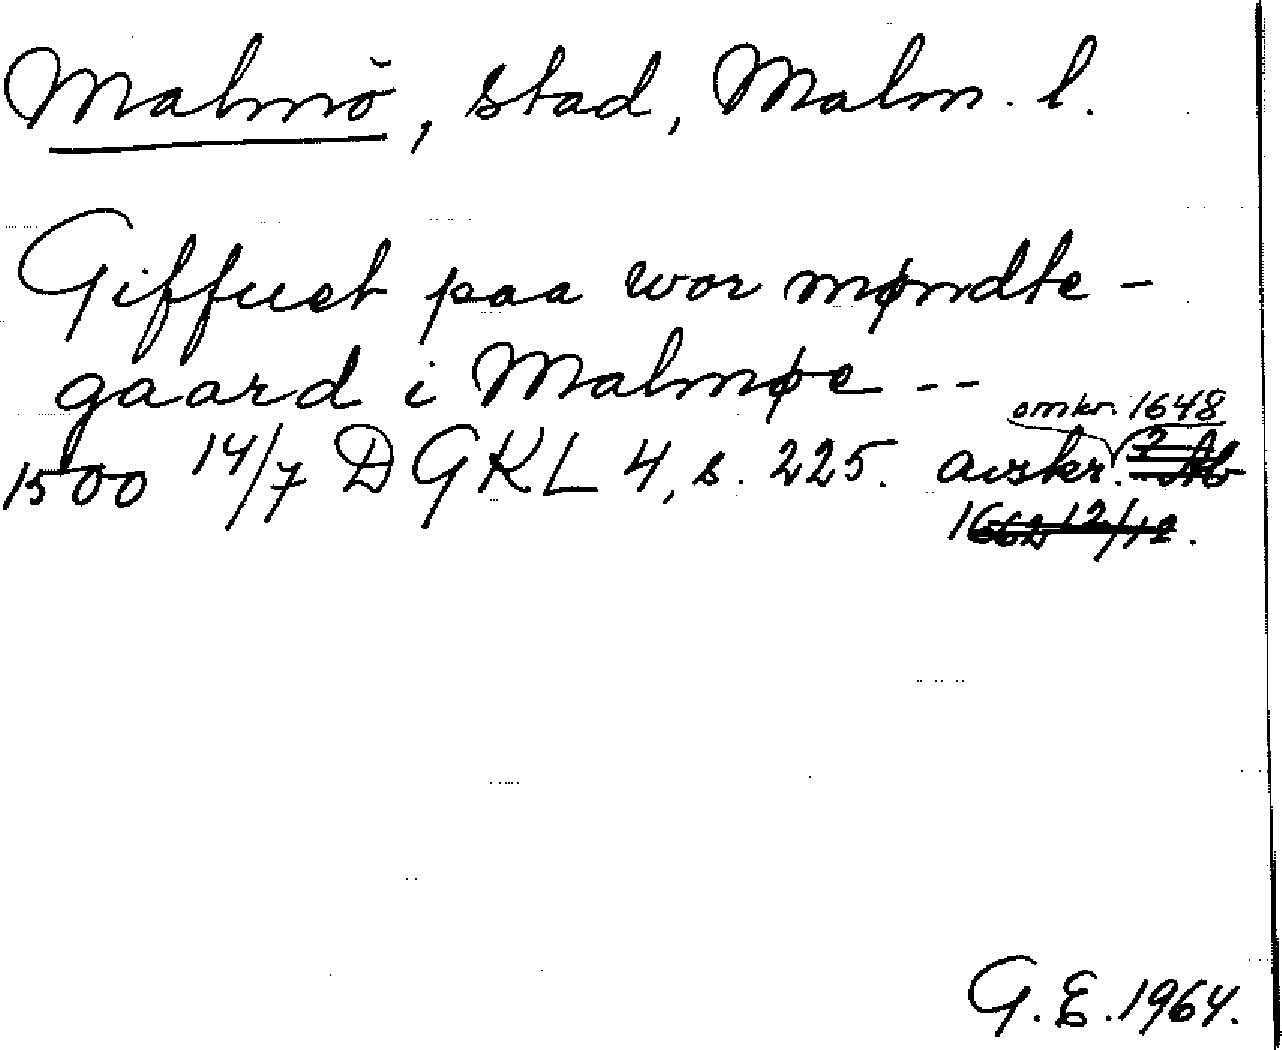 Malmö, stad, Malm. l.
Giffuet paa wor møndte -
gaard i Malmøe - -
omkr. 1648
1500 14/7 DGKL 4, s. 225. avskr.
1662 12/12.
G. E. 1964.